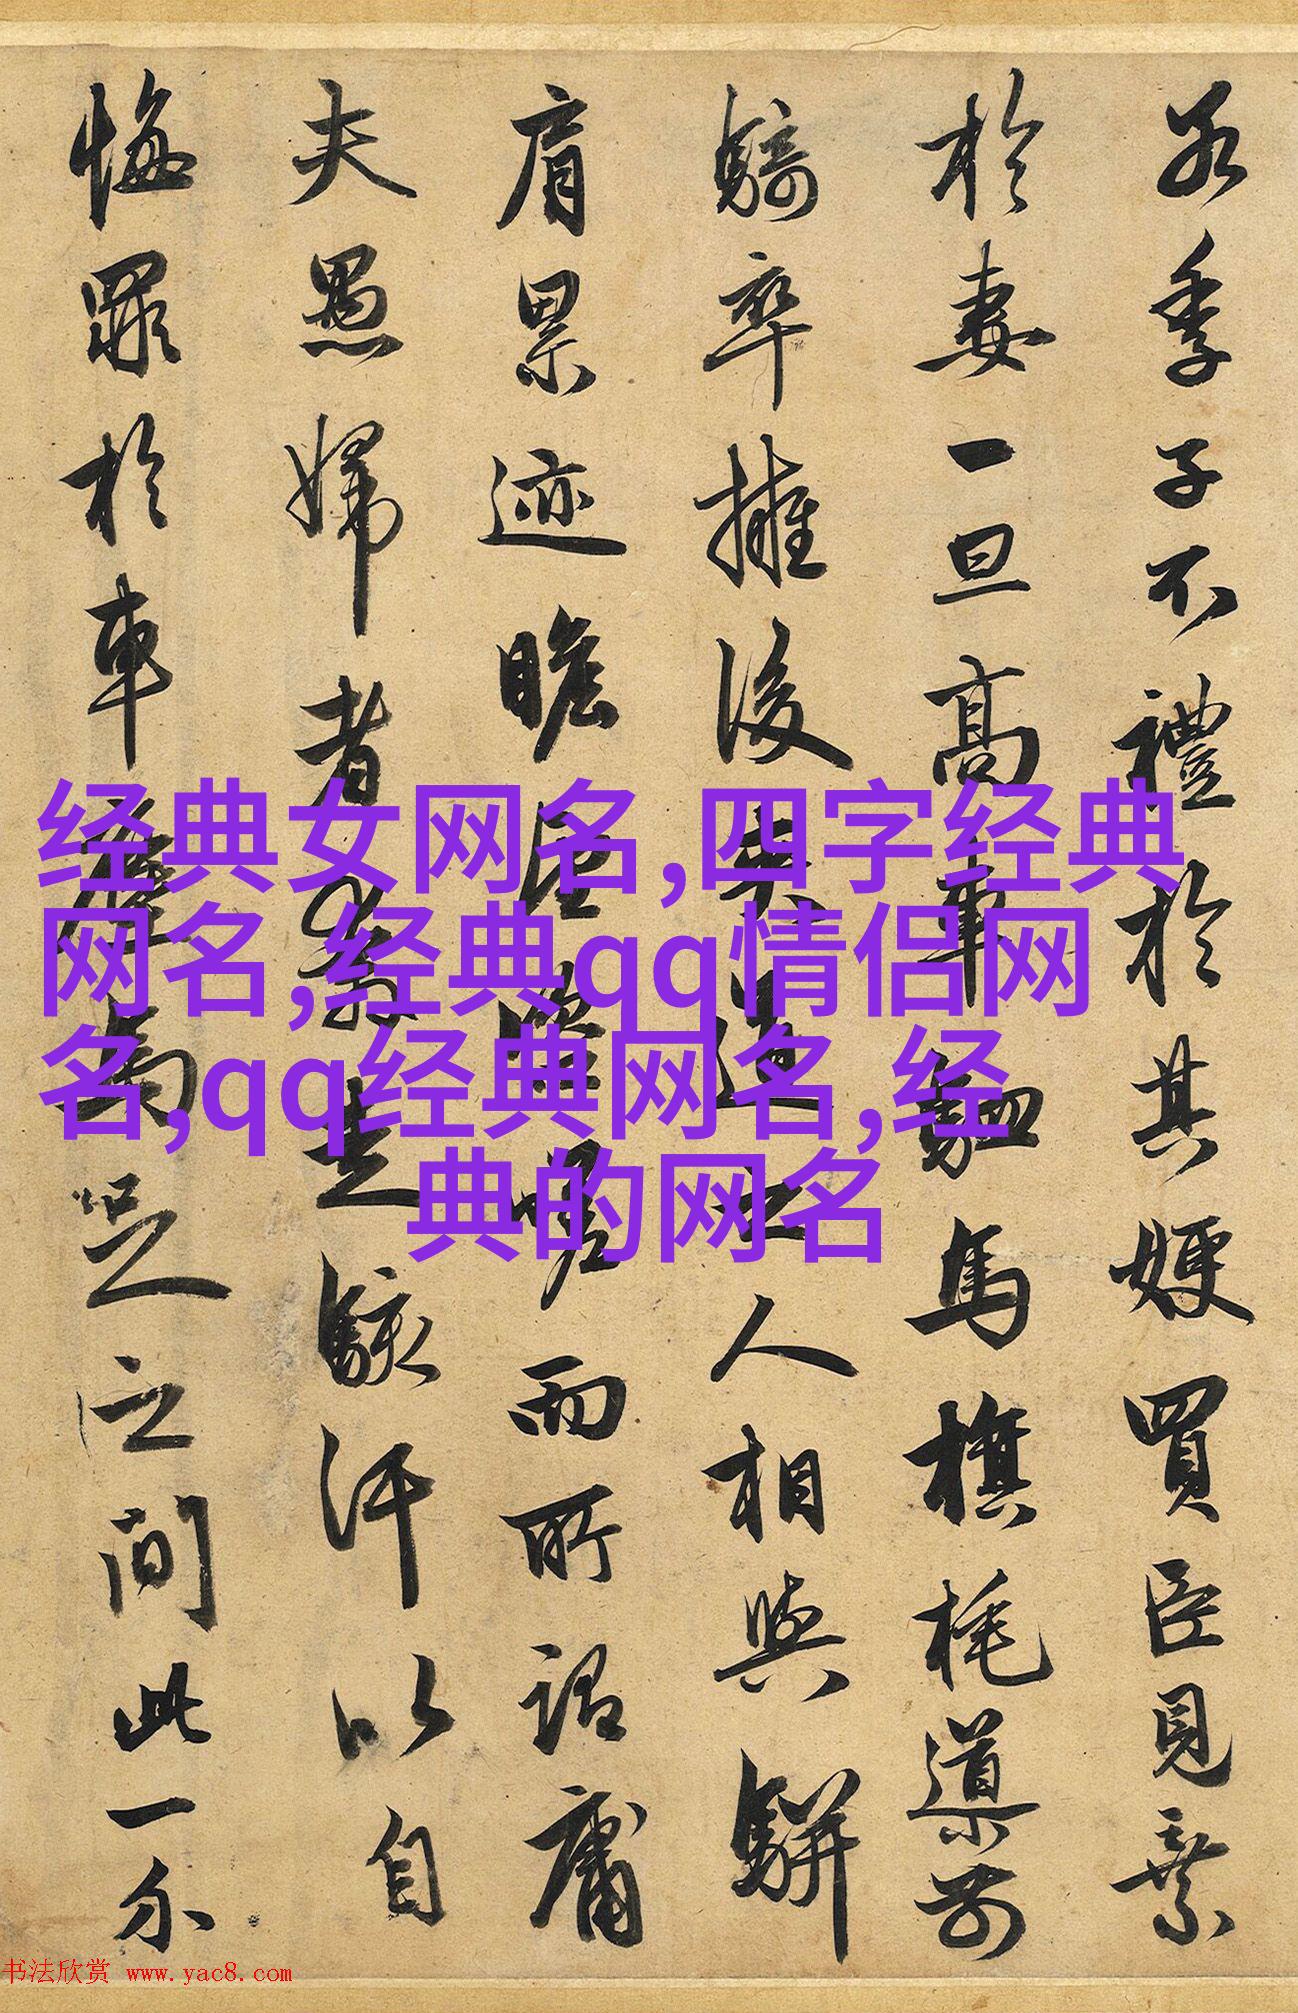 若季子不禮於其嫂買臣見棄
於妻一旦高車駟馬旗旄導前
騎卒擁後夾道之人相與駢
肩累迹瞻望咨嗟而所謂庸
夫愚婦者奔走駭汗以自
悔罪於車塵馬足之間此一介
经典女网名,四字经典
网名,经典qq情侣网
名,qq经典网名,经
典的网名
书法欣赏 www.yac8.com